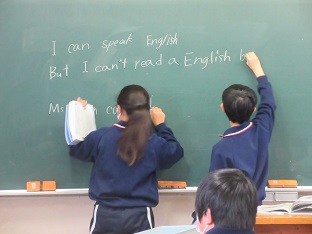 I can speak English
But I can't read a English b